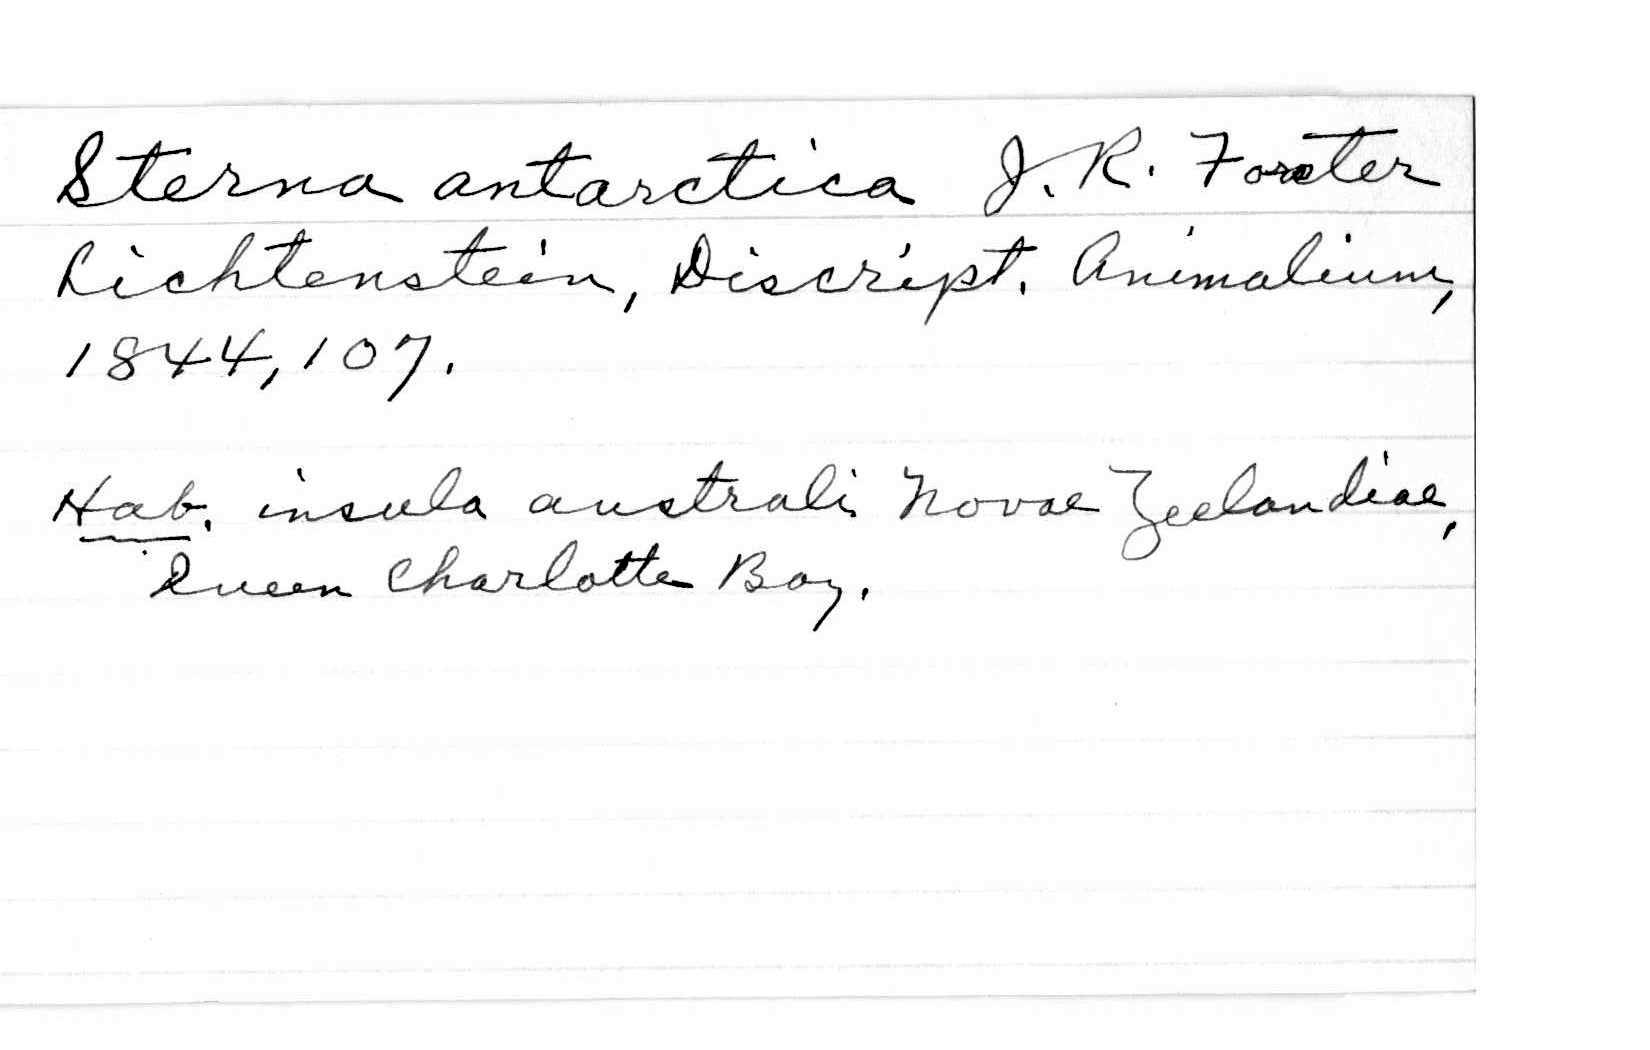 Sterna antarctica J. R. Forster
Lichtenstein, Discript. Animalium,
1844, 107.
Hab. insula australi Novae Zeelandiae,
Queen Charlotte Bay.